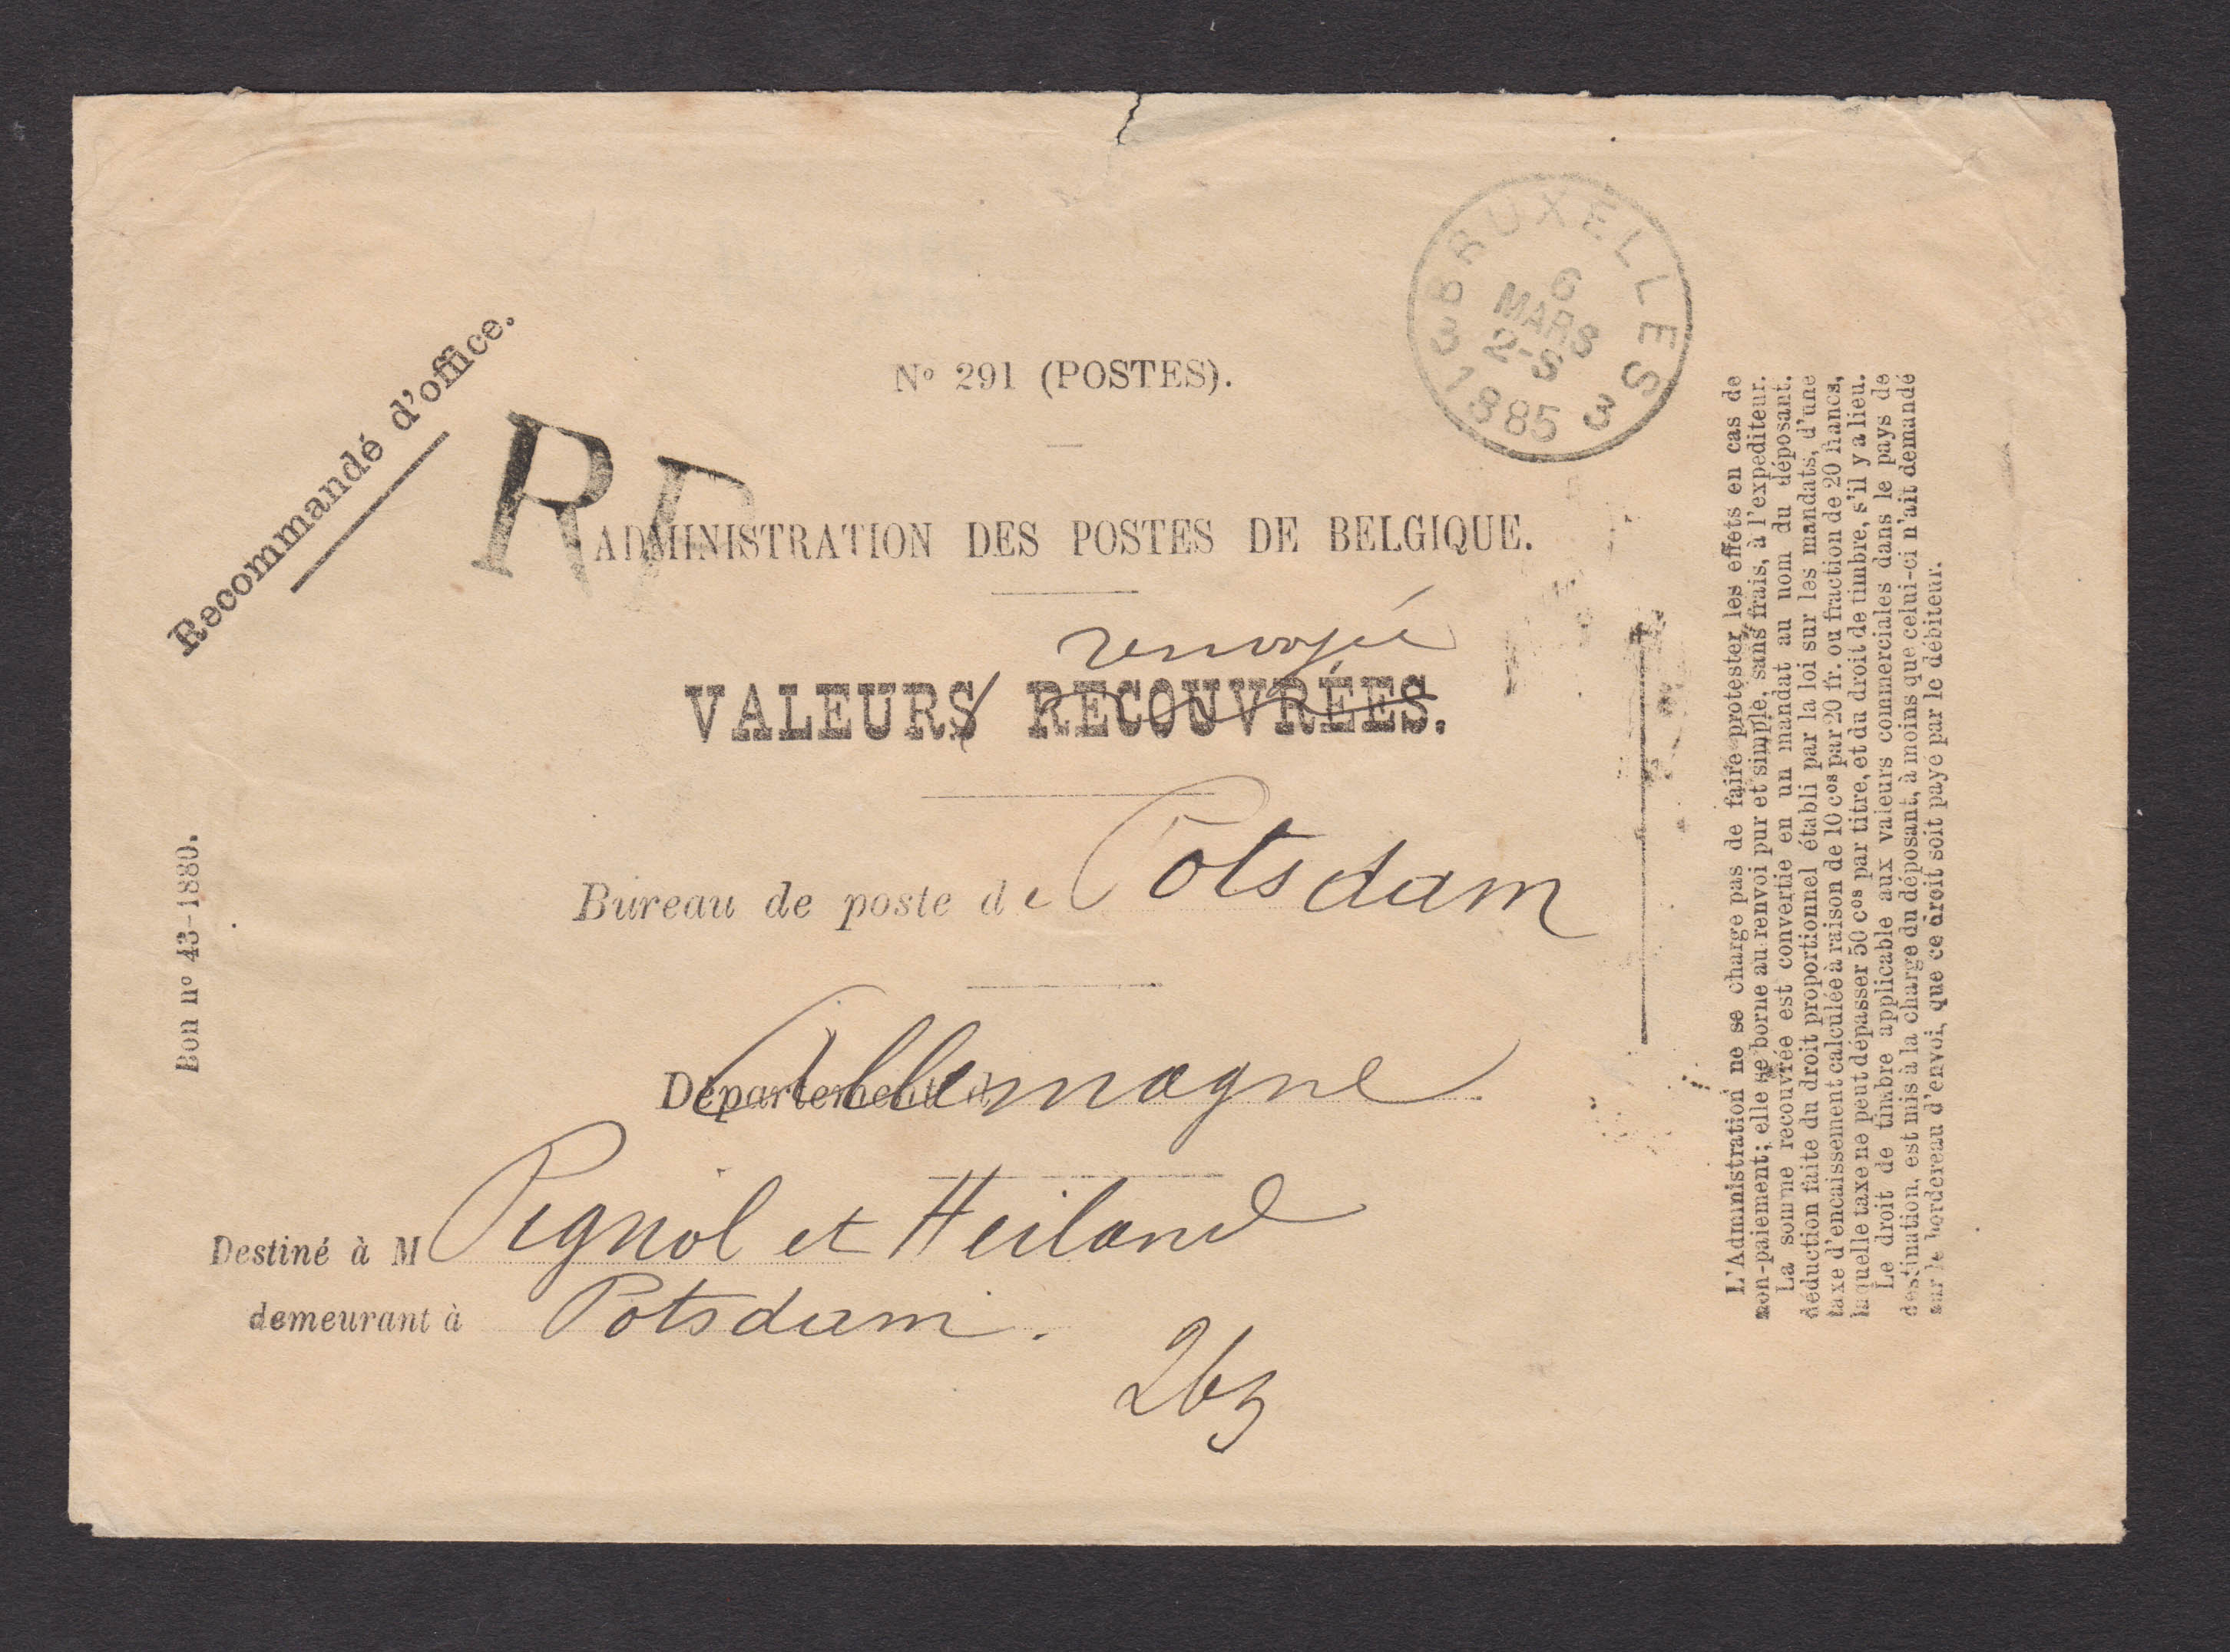 BRUXELLES
6
MARS
2-S
3 1885 3
Recommandé d'office.
N° 291 (POSTES).
R R
ADMINISTRATION DES POSTES DE BELGIQUE.
renvoyée
VALEURS RECOUVRÉES.
Bureau de poste de Potsdam
Département d
Allemagne
Destiné à M Pignol et Heiland
demeurant à Potsdam.
263
Bon n° 43-1880.
L'Administration ne se charge pas de faire protester les effets en cas de
non-paiement; elle se borne au renvoi pur et simple, sans frais, à l'expéditeur.
La somme recouvrée est convertie en un mandat au nom du déposant.
déduction faite du droit proportionnel établi par la loi sur les mandats, d'une
taxe d'encaissement calculée à raison de 10 cos par 20 fr. ou fraction de 20 francs,
laquelle taxe ne peut dépasser 50 cos par titre, et du droit de timbre, s'il y a lieu.
Le droit de timbre applicable aux valeurs commerciales dans le pays de
destination, est mis à la charge du déposant, à moins que celui-ci n'ait demandé
sur le bordereau d'envoi, que ce droit soit payé par le débiteur.